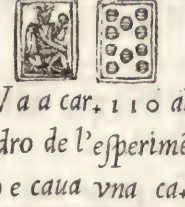 V a a car. 110 al
dro de l'eſperimē
o e caua vna ca.